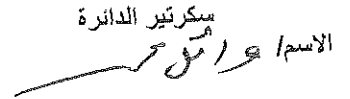 سكرتير الدائرة
الاسم/ وائل